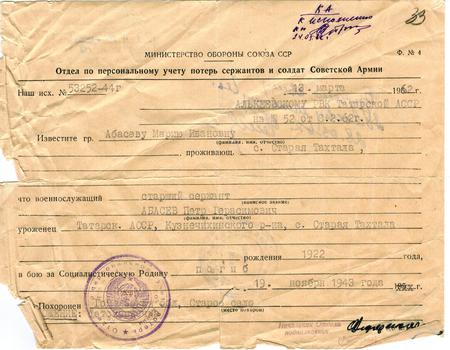 КА
К исполнению
33
МИНИСТЕРСТВО ОБОРОНЫ СОЮЗА ССР
Ф. № 4
Отдел по персональному учету потерь сержантов и солдат Советской Армии
Наш исх. № 53252-44г
13. марта 1962
АЛЬКЕЕВСКОМУ РВК Татарской АССР
на № 52 от 3.2.62г.
Известите гр. Абасеву Марию Ивановну
(фамилия, имя, отчество)
, проживающ. с. Старая Тахтала ,
что военнослужащий старший сержант
(воинское звание)
АБАСЕВ Петр Герасимович
(фамилия, имя, отчество)
уроженец Татарск. АССР, Кузнечихинского р-на, с. Старая Тахтала
рождения 1922 года,
в бою за Социалистическую Родину погиб
19. ноября 1943 года
Похоронен Старое село
(место похорон)
Начальник отдела
подполковник